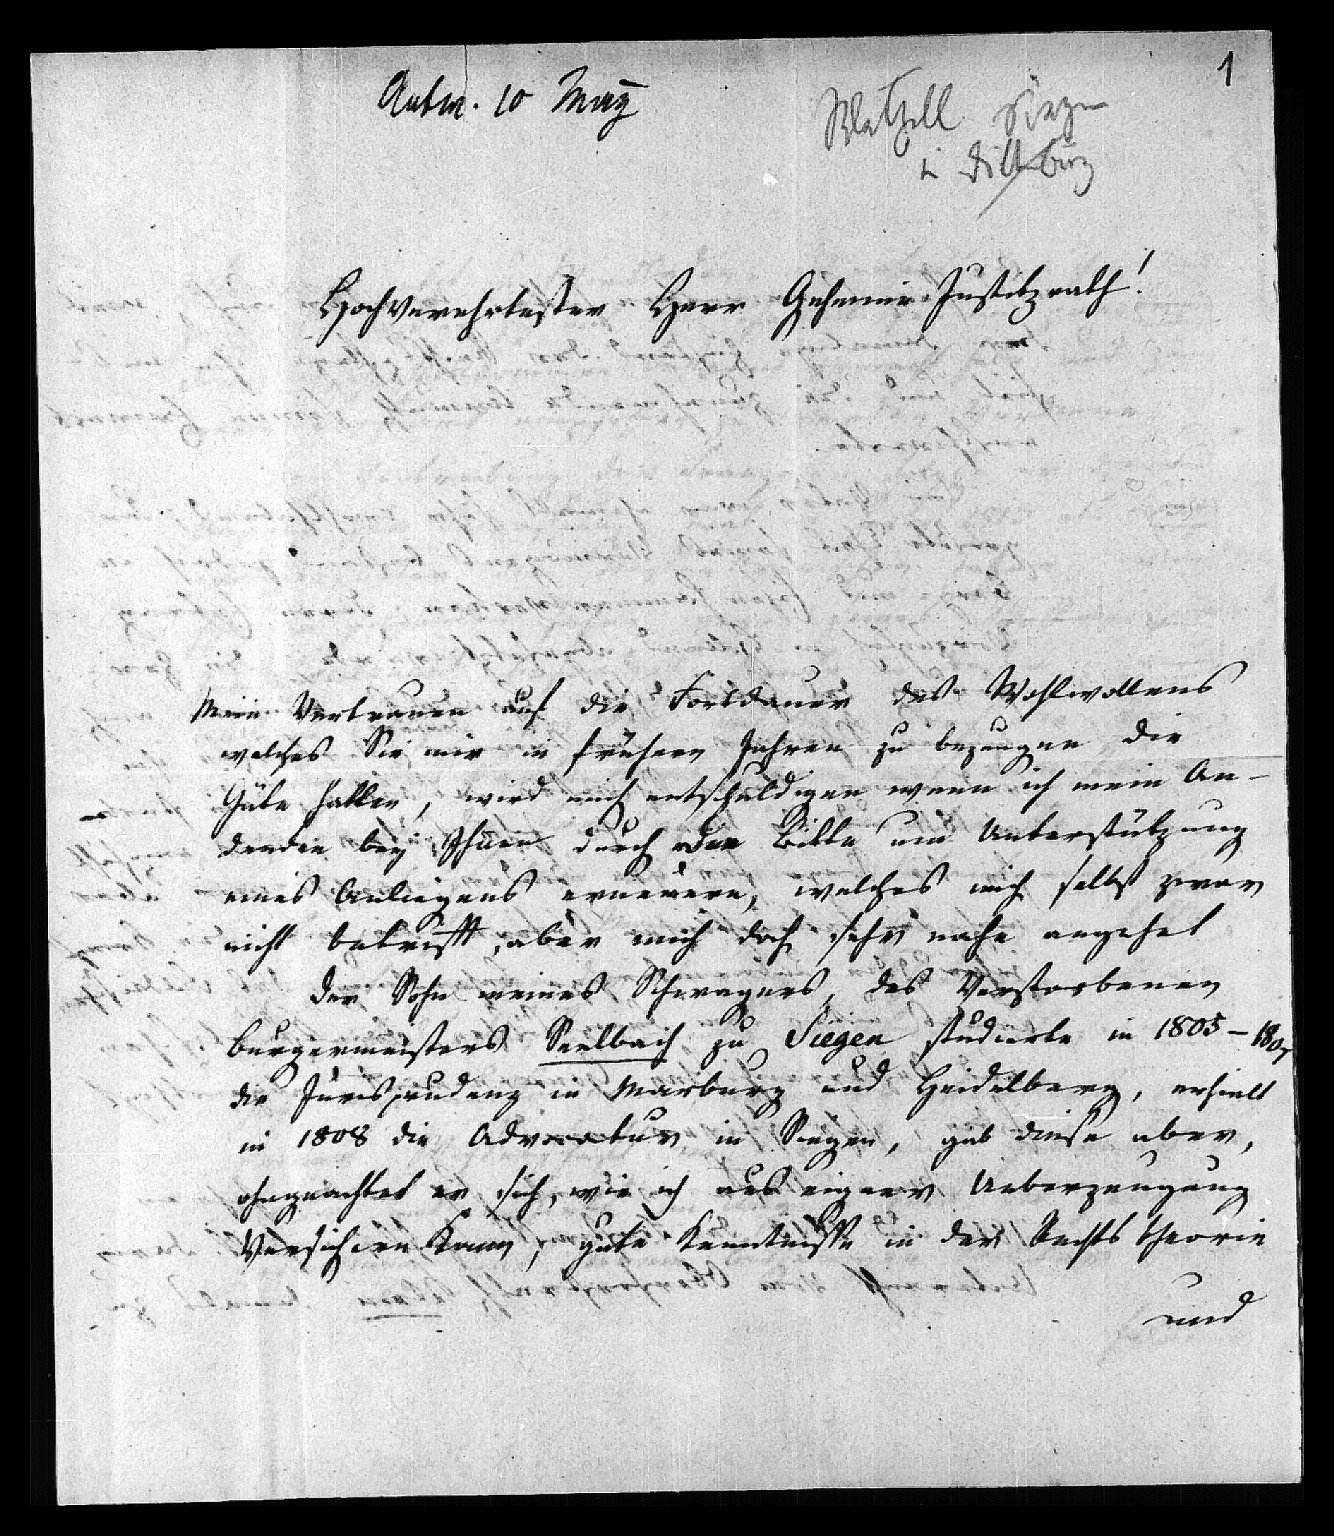 1
Antw. 10 May
Siegen
in Dillenburg
Hochverehrtester Herr Geheimer Justitzrath!
Mein Vertrauen auf die Fortdauer des Wohlwollens
welches Sie mir in frühern Jahren zu bezeugen die
Güte hatten, wird mich entschuldigen wenn ich mein An-
denden bey Ihnen durch die Bitte um Unterstützung
eines Anliegens erneuere, welches mich selbst zwar
nicht betrifft, aber mich doch sehr nahe angehet
Der Sohn meines Schwagers, des Verstorbenen
burgermeisters Seelbach zu Siegen studierte in 1805–1807
die Jurisprudenz in Marburg und Heidelberg, erhielt
in 1808 die Advocatur in Siegen, gab diese aber,
ohngeachtet er sich, wie ich aus eigner Ueberzeugung
Versichern Kann, gute Kenntnisse in der Rechts theorie
und